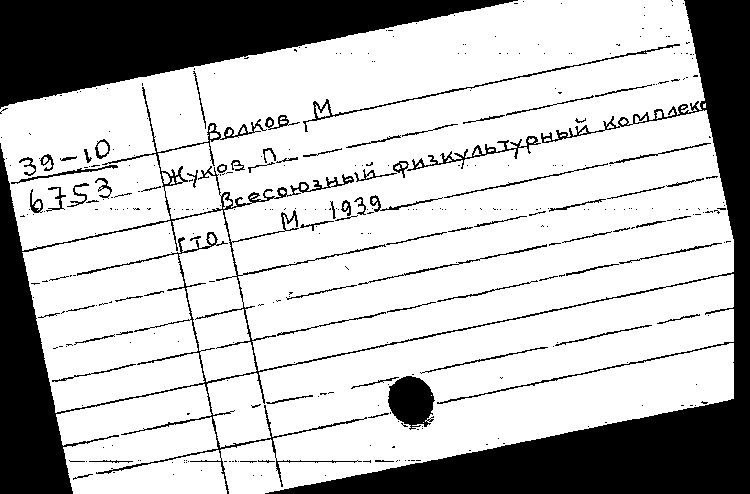 39-10
6753
Волков, М.
Жуков, П.
Всесоюзный физкультурный комплекс
ГТО. М., 1939